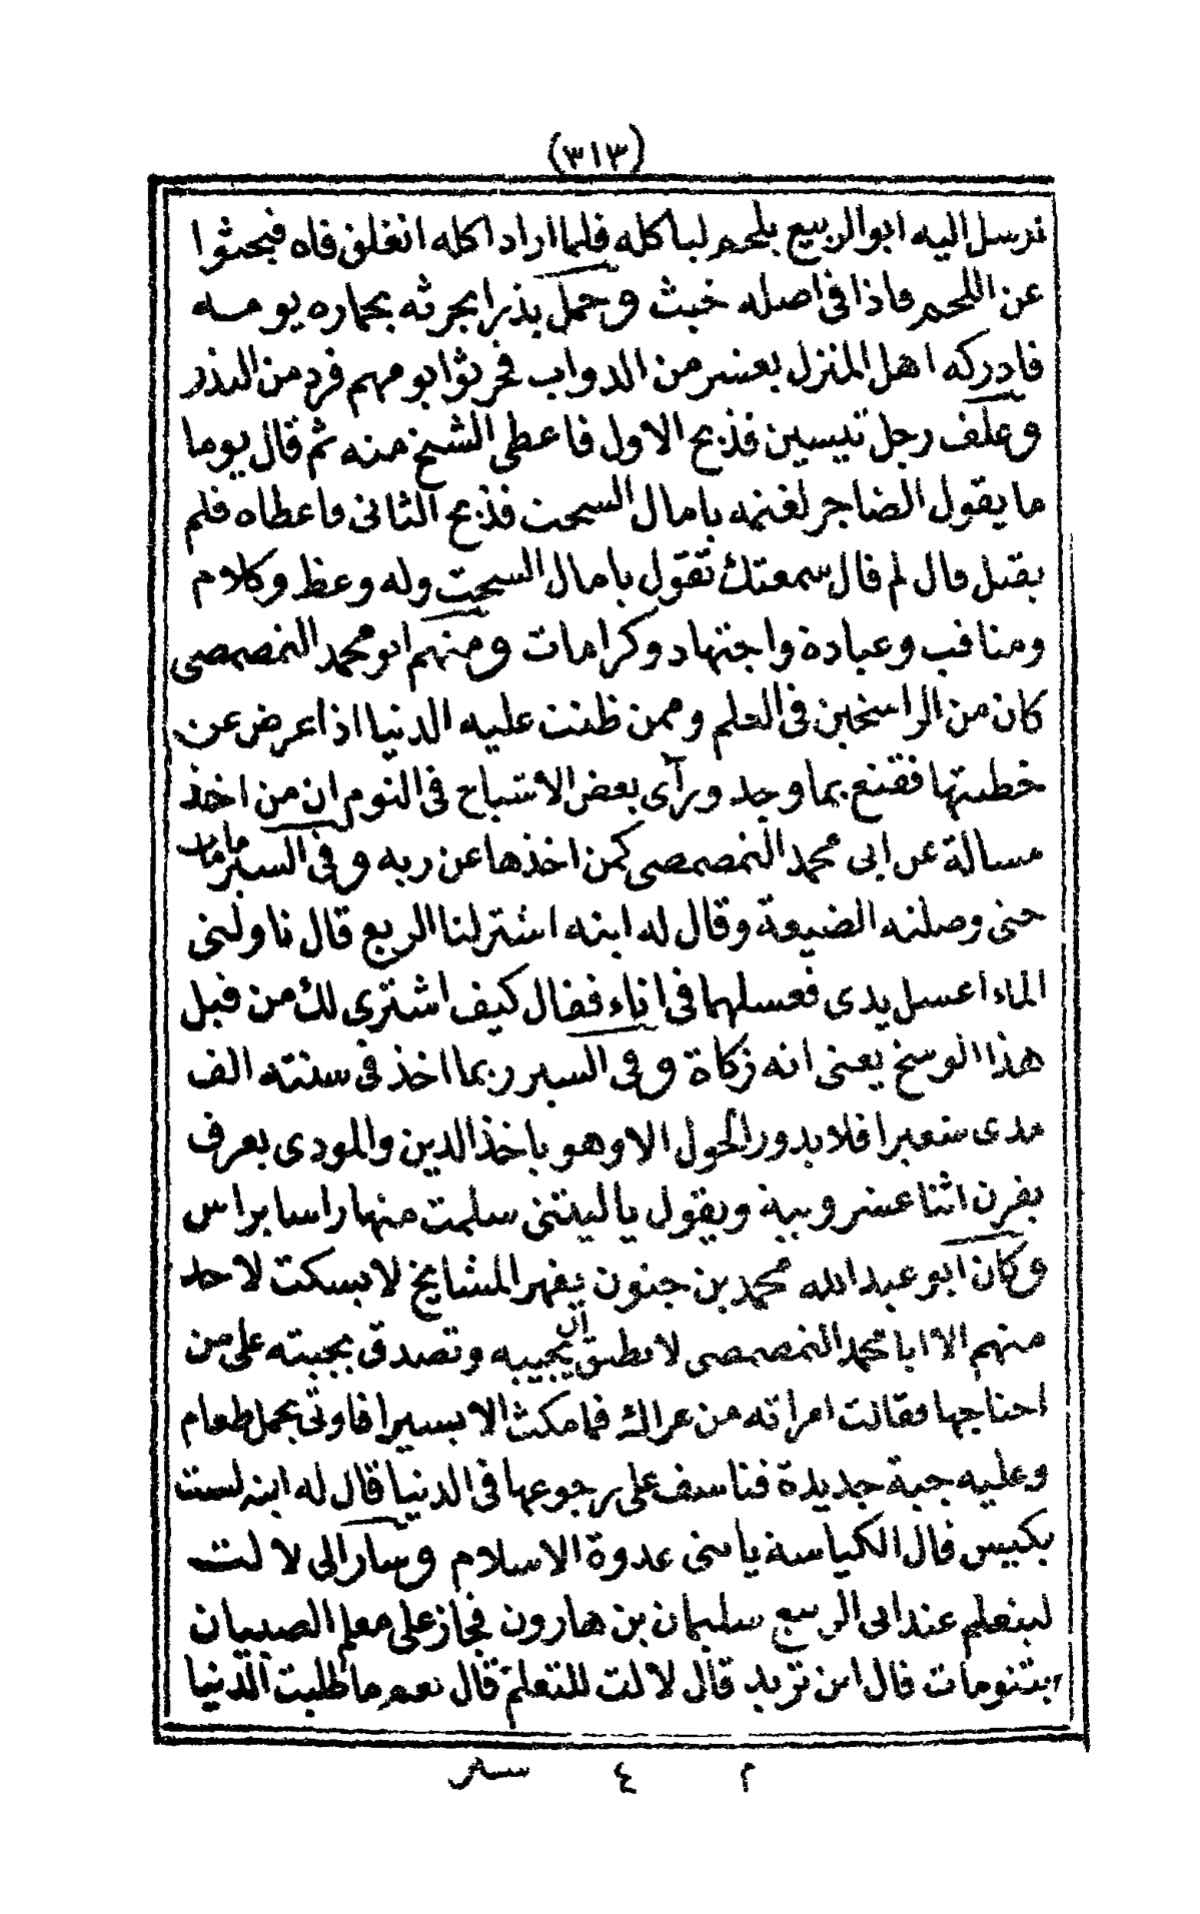 (٣١٣)
نرسل اليه ابو الربيع بلحم لياكله فلما اراد اكله انغلق فاه فبحثوا
عن اللحم فاذا فى اصله خبث وحمل بذرا بحرثه بحماره يومه
فادركه اهل المنزل بعشر من الدواب فحرثوا يومهم فرد من البذر
وعلف رجل تيسين فذبح الاول فاعطى الشيخ منه ثم قال يوما
ما يقول الضاجر لغنمه يا مال السحت فذبح الثانى فاعطاه فلم
يقبل فال لم قال سمعتك تقول يا مال السحت وله وعظ وكلام
ومناقب وعبادة واجتهاد وكرامات ومنهم ابو محمد النمصمصى
كان من الراسخين فى العلم وممن ظنت عليه الدنيا اذا عرض عن
خطبتها فقنع بما وجد ورآى بعض الاشياخ فى النوم ان من اخذ
مسالة عن ابى محمد النمصمصى كمن اخذها عن ربه وفى السير ما مات
حتى وصلته الضيعة وقال له ابنه اشتر لنا الربع قال ناولنى
الماء اغسل يدى فغسلهما فى اناء فقال كيف اشترى لك من قبل
هذا الوسخ يعنى انه زكاة وفى السير ربما اخذ فى سنته الف
مدى شعيرا فلا يدور الحول الا وهو ياخذ الدين والمودى يعرف
بفرن اثنا عشر ويبة ويقول يا ليتنى سلمت منها راسا براس
وكان ابو عبد الله محمد بن جنون يقهر المشايخ لا يسكت لاحد
منهم الا ابا محمد النمصمصى لا يطيق ان يجيبه وتصدق بجبته على من
احتاجها فقالت امراته من عراك فما مكث الا يسيرا فاوتى بحمل طعام
وعليه جبة جديدة فتاسف على رجوعها فى الدنيا قال له ابنه لست
بكيس قال الكياسة يا بنى عدوة الاسلام وسار الى لالت
ليتعلم عند ابى الربيع سليمان بن هارون فجاز على معلم الصبيان
بتنومات قال اين تريد قال لالت للتعلم قال نعم ما طلبت الدنيا
م ٤ سير